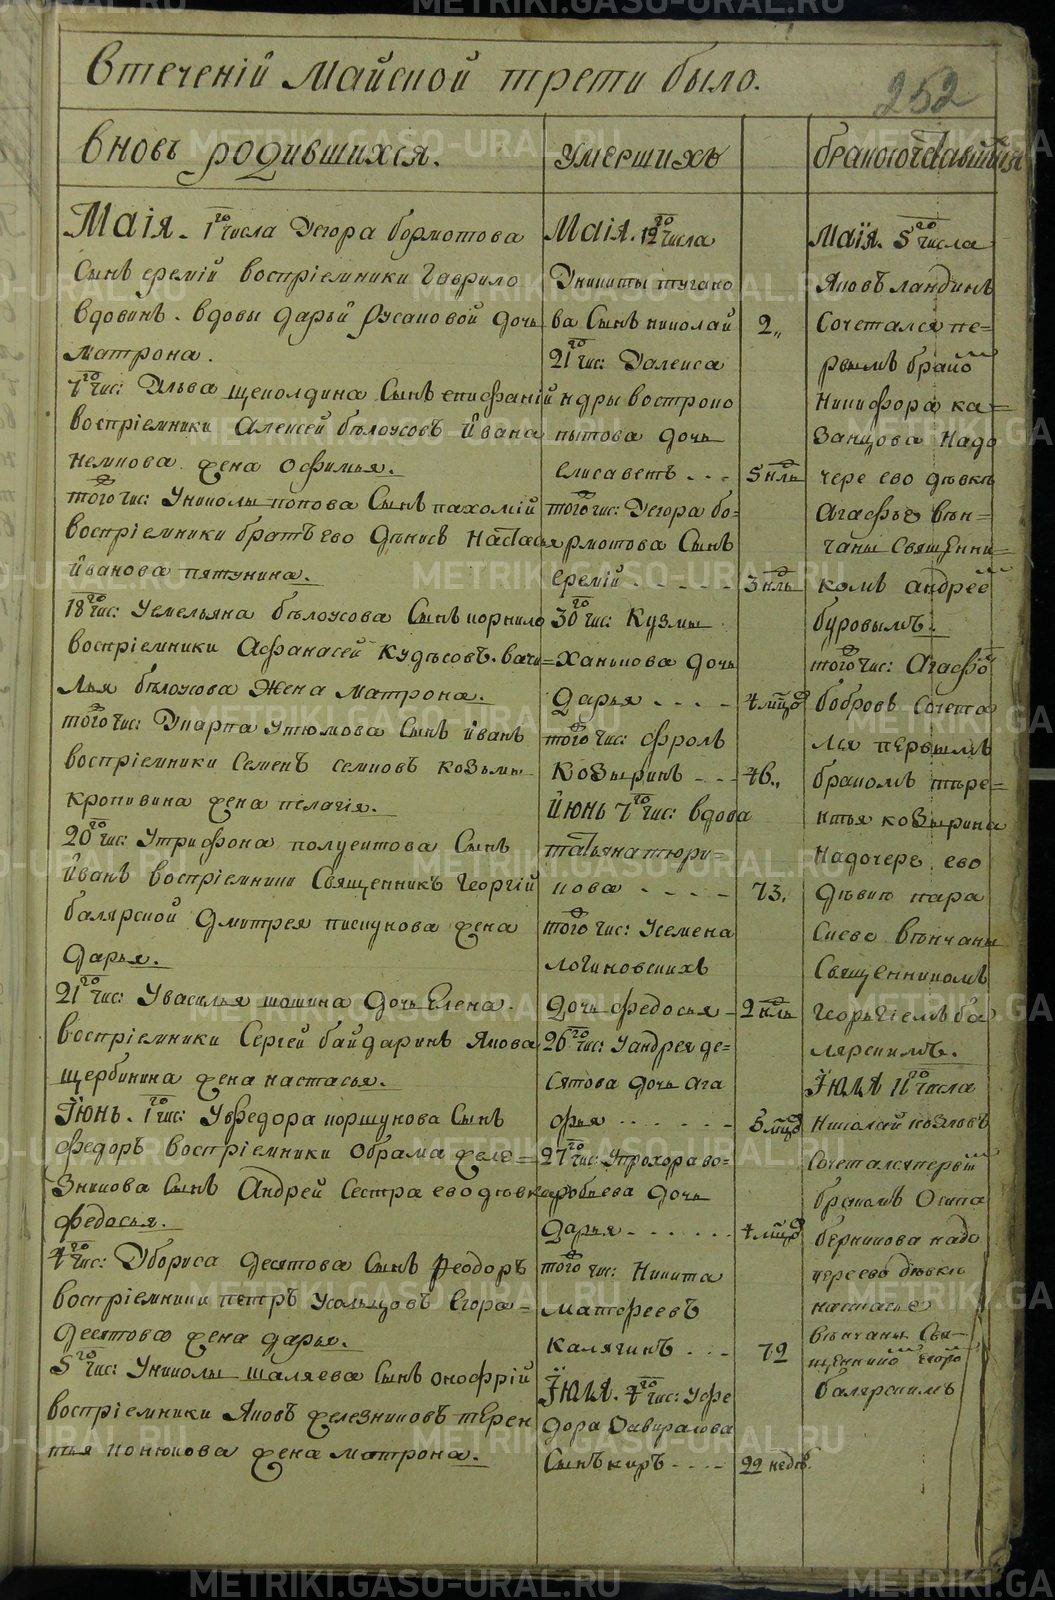 Втеченій Майской трети было.
252
Вновь родившихся.
Маія. 1го числа Уегора бормотова
Сынъ еремій воспріемники Гаврило
вдовинъ. вдовы дарьи русаковой дочь
матрона.
7го чис: Ульва щеколдина Сынъ епифаній
воспріемники Алексей бѣлоусовъ Ивана
немкова жена офимья.
того чис: Униколы попова Сынъ пахомій
воспріемники братъ ево денисъ настасья
Иванова пятунина.
18го чис: Уемельяна бѣлоусова Сынъ корнило
воспріемники Афанасей Кудѣсовъ. васи=
лья бѣлоусова жена матрона.
того чис: Укарпа утюмова Сынъ Иванъ
воспріемники Семенъ семковъ козьмы
кропивина жена пелагія.
20го чис: Утрифона полуектова Сынъ
Иванъ воспріемники Священникъ Георгій
балярской дмитрея пискунова жена
дарья.
21го чис: Увасилья шошина дочь Елена.
воспріемники Сергей байдаринъ Якова
щербинина жена настасья.
Іюнь. 1го чис: Уфедора коршунова Сынъ
федоръ воспріемники Обрама желе=
зникова Сынъ Андрей Сестра ево девка
федосья.
4го чис: Убориса десятова Сынъ феодоръ
воспріемники петръ Усольцовъ Егора=
десятова жена дарья.
5го чис: Униколы шаляева Сынъ онофрій
воспріемники Яковъ железниковъ терен
тья конюкова жена матрона.
умершихъ
Маія. 12го числа
Уникиты тугано
ва Сынъ николай 2,,
21го чис: Уалекса
ндры востроко
пытова дочь
елисаветъ . . . 5 нль
того чис: Уегора бо=
рмотова Сынъ
еремій - - - - - 3 нль
30го чис: Кузмы
Ханыкова дочь
дарья - - - - 4 мцо
того чис: фролъ
Козыринъ - - - 46.,
Июнь 7го чис: вдова
татьяна тюри=
кова - - - - 73.
того чис: Усемена
логиновскихъ
дочь федосья - 2 нль
26го чис: Уандрея де=
сятова дочь ага
фья . . . . . . 3 мцо
27го чис: Упрохора во=
робьева дочь
дарья . . . . . . 4 мцо
того чис: Никита
матфеевъ
Калягинъ . . . 72
Іюля. 4го чис: Уфе
дора
Сынъ киръ . . . . 22 недѣ.
бракосочтавшихся
Маія. 5го числа
Яковъ ландинъ
Сочетался пе=
рвымъ брако
Никифора ка=
занцова надо
чере ево девкѣ
агафье вѣн=
чаны Священни=
комъ андрее
буровымъ.
того чис: Агафо
бобровъ сочета
лся первымъ
бракомъ тере=
нтья козырина
надочере ево
девкою пара
скеве вѣнчаны
Священникомъ
георьгіемъ ба
лярскимъ.
Іюля 11го числа
Николай козловъ
Сочетался первы
бракомъ Осипа
берникова надо
чере ево девкѣ
настасье
вѣнчаны Свя-
щеннико
балярскимъ